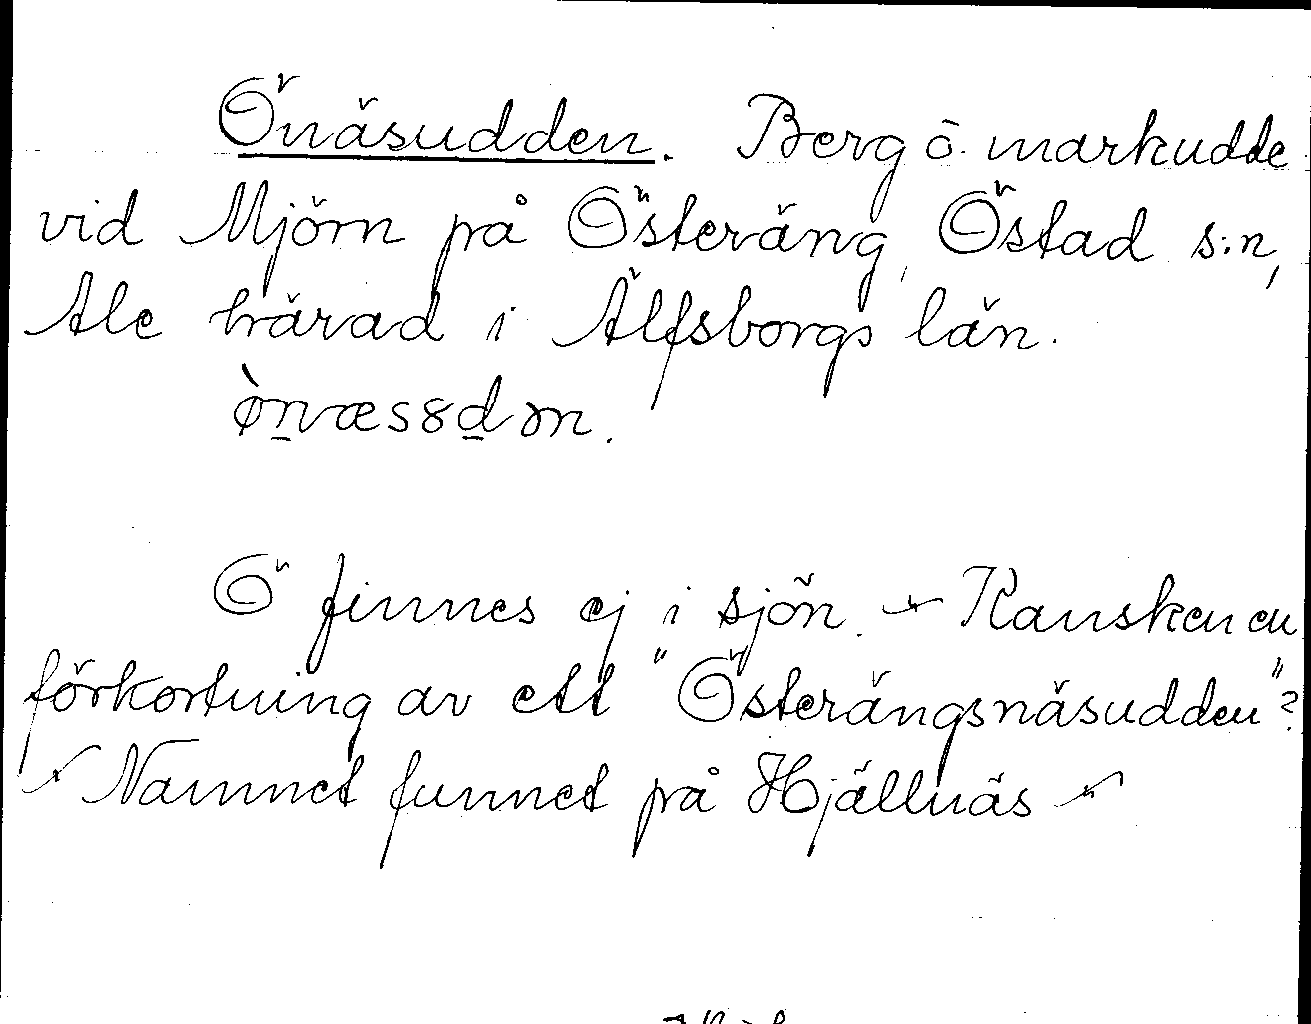 Önäsudden. Berg o. markudde
vid Mjörn på Österäng, Östad s:n,
Ale härad i Älfsborgs län.
ø̀næs8dən.
Ö finnes ej i sjön. - Kansken en
förkortning av ett "Österängsnäsudden"?
- Namnet funnet på Hjällnäs -